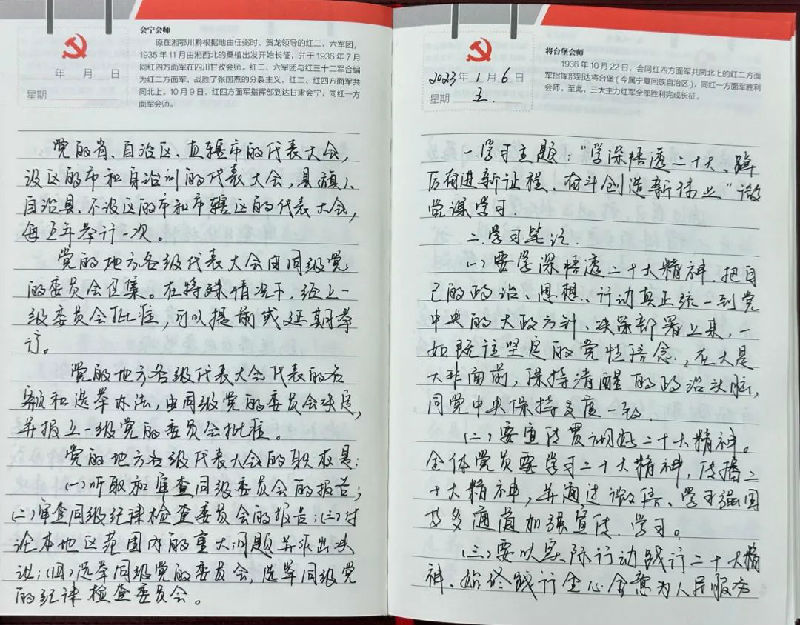 会宁会师
原在湘鄂川黔根据地由任弼时、贺龙领导的红二、六军团,
1935年11月由湘西北的桑植出发开始长征,并于1936年7月
同红四方面军在四川甘孜会师。红二、六军团与红三十二军合编
为红二方面军,战胜了张国焘的分裂主义,红二、红四方面军共
同北上。10月9日,红四方面军指挥部到达甘肃会宁,同红一方
面军会师。
年 月 日
星期
党的省、自治区、直辖市的代表大会,
设区的市和自治州的代表大会,县(旗)、
自治县、不设区的市和市辖区的代表大会,
每五年举行一次。
党的地方各级代表大会由同级党
的委员会召集。在特殊情况下,经上一
级委员会批准,可以提前或延期举
行。
党的地方各级代表大会代表的名
额和选举办法,由同级党的委员会决定,
并报上一级党的委员会批准。
党的地方各级代表大会的职权是:
(一)听取和审查同级委员会的报告;
(二)审查同级纪律检查委员会的报告;(三)讨
论本地区范围内的重大问题并作出决
议;(四)选举同级党的委员会,选举同级党
的纪律检查委员会。
将台堡会师
1936年10月22日,会同红四方面军共同北上的红二方面
军指挥部到达将台堡(今属宁夏回族自治区),同红一方面军胜利
会师。至此,三大主力红军全部胜利完成长征。
2023年1月6日
星期 五
一.学习主题:“学深悟透二十大、踔
厉奋进新征程、奋斗创造新伟业”微
党课学习.
二.学习笔记.
(一)要学深悟透二十大精神.把自
己的政治、思想、行动真正统一到党
中央的大政方针、决策部署上来,一
如既往坚定的党性信念,在大是
大非面前,保持清醒的政治头脑,
同党中央保持高度一致.
(二)要宣传贯彻好二十大精神。
全体党员要学习二十大精神,传播二
十大精神,并通过微信、学习强国
等多渠道加强宣传、学习。
(三)要以实际行动践行二十大精
神.始终践行全心全意为人民服务